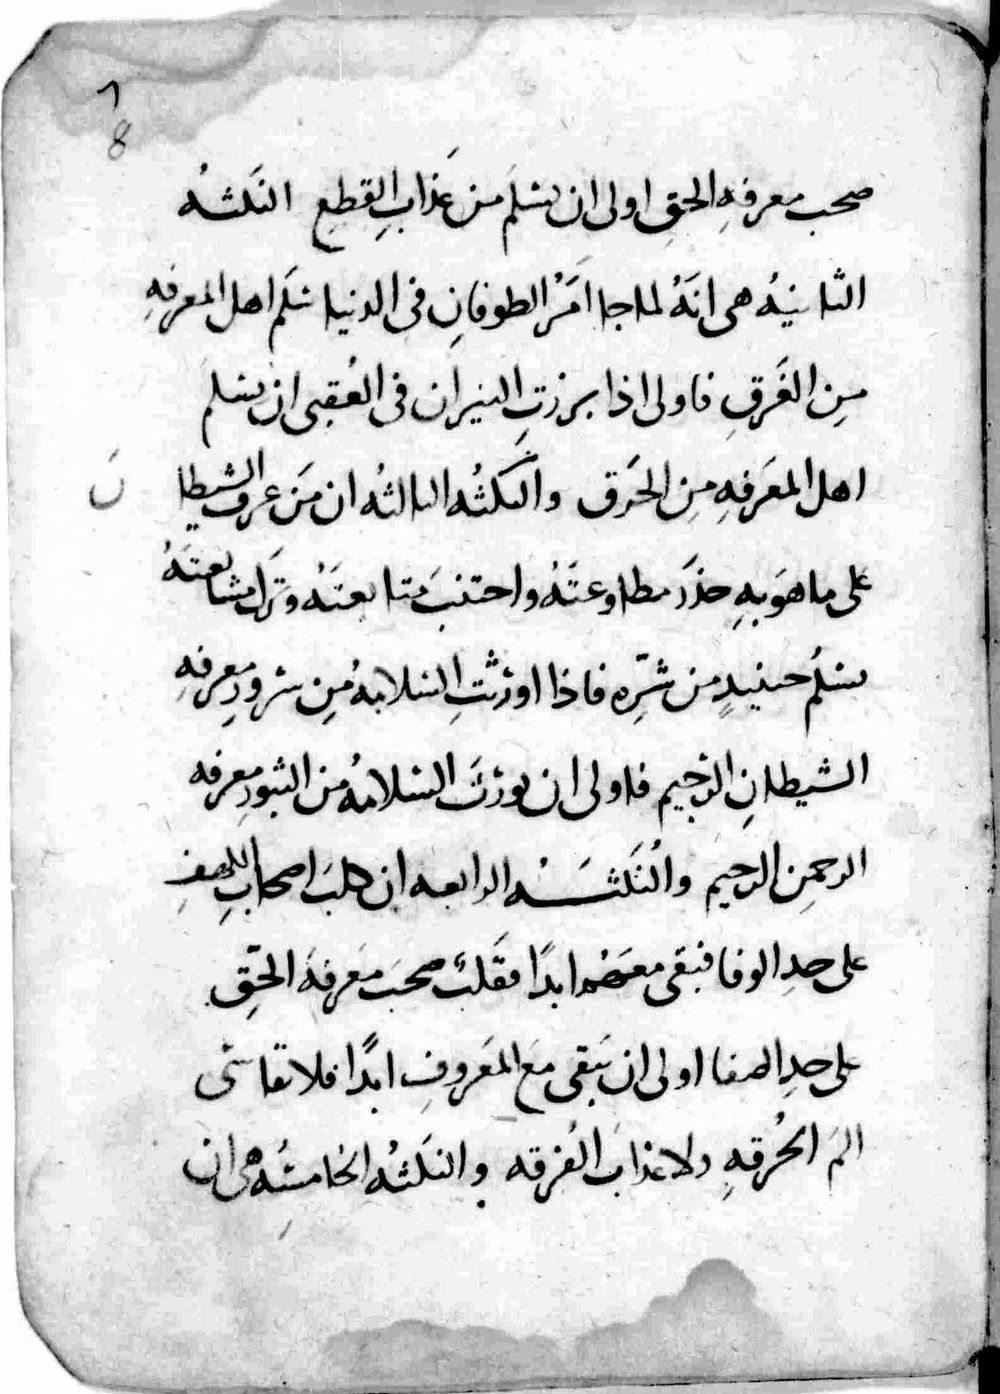 ٦
8
صحب معرفهِ الحقِ اولى ان يسْلَم من عَذابِ القطعِ النكتهُ
الثانيهُ هى انهُ لما جا امَرُ الطوفانِ فى الدنيا سَلم اهل المعرفهِ
مِن الغَرقِ فاولى اذا برزتِ النيران فى العُقبى ان يسلم
اهل المعَرفهِ مِن الحَرق والنكتهُ الثالثهُ ان مَن عَرف الشيطا
نَ
على ما هوَ بهِ حذرَ مطاوعتَهُ واجتنبَ متابعتَهُ وترك مشايعتَهُ
يسلمُ حينيذٍ من شرِّه فاذا اورثتِ السلامهُ مِن شرورِ معرفهِ
الشيطانِ الرجيم فاولى ان يورثَ السلامهُ من الثبور معرفه
الرحمنِ الرحيم والنكتـــهُ الرابعه ان كلبَ اصحابِ الكهفِ
على حدِ الوفا فبقى معهم ابدًا فقلبٌ صحبَ معَرفهَ الحقِّ
على حدِ الصفا اولى ان يَبقى معَ المعَروفِ ابدًا فلا يقاسى
المَ الحُرقهِ ولا عذابَ الفُرقه والنكتهُ الخامسَه هى ان